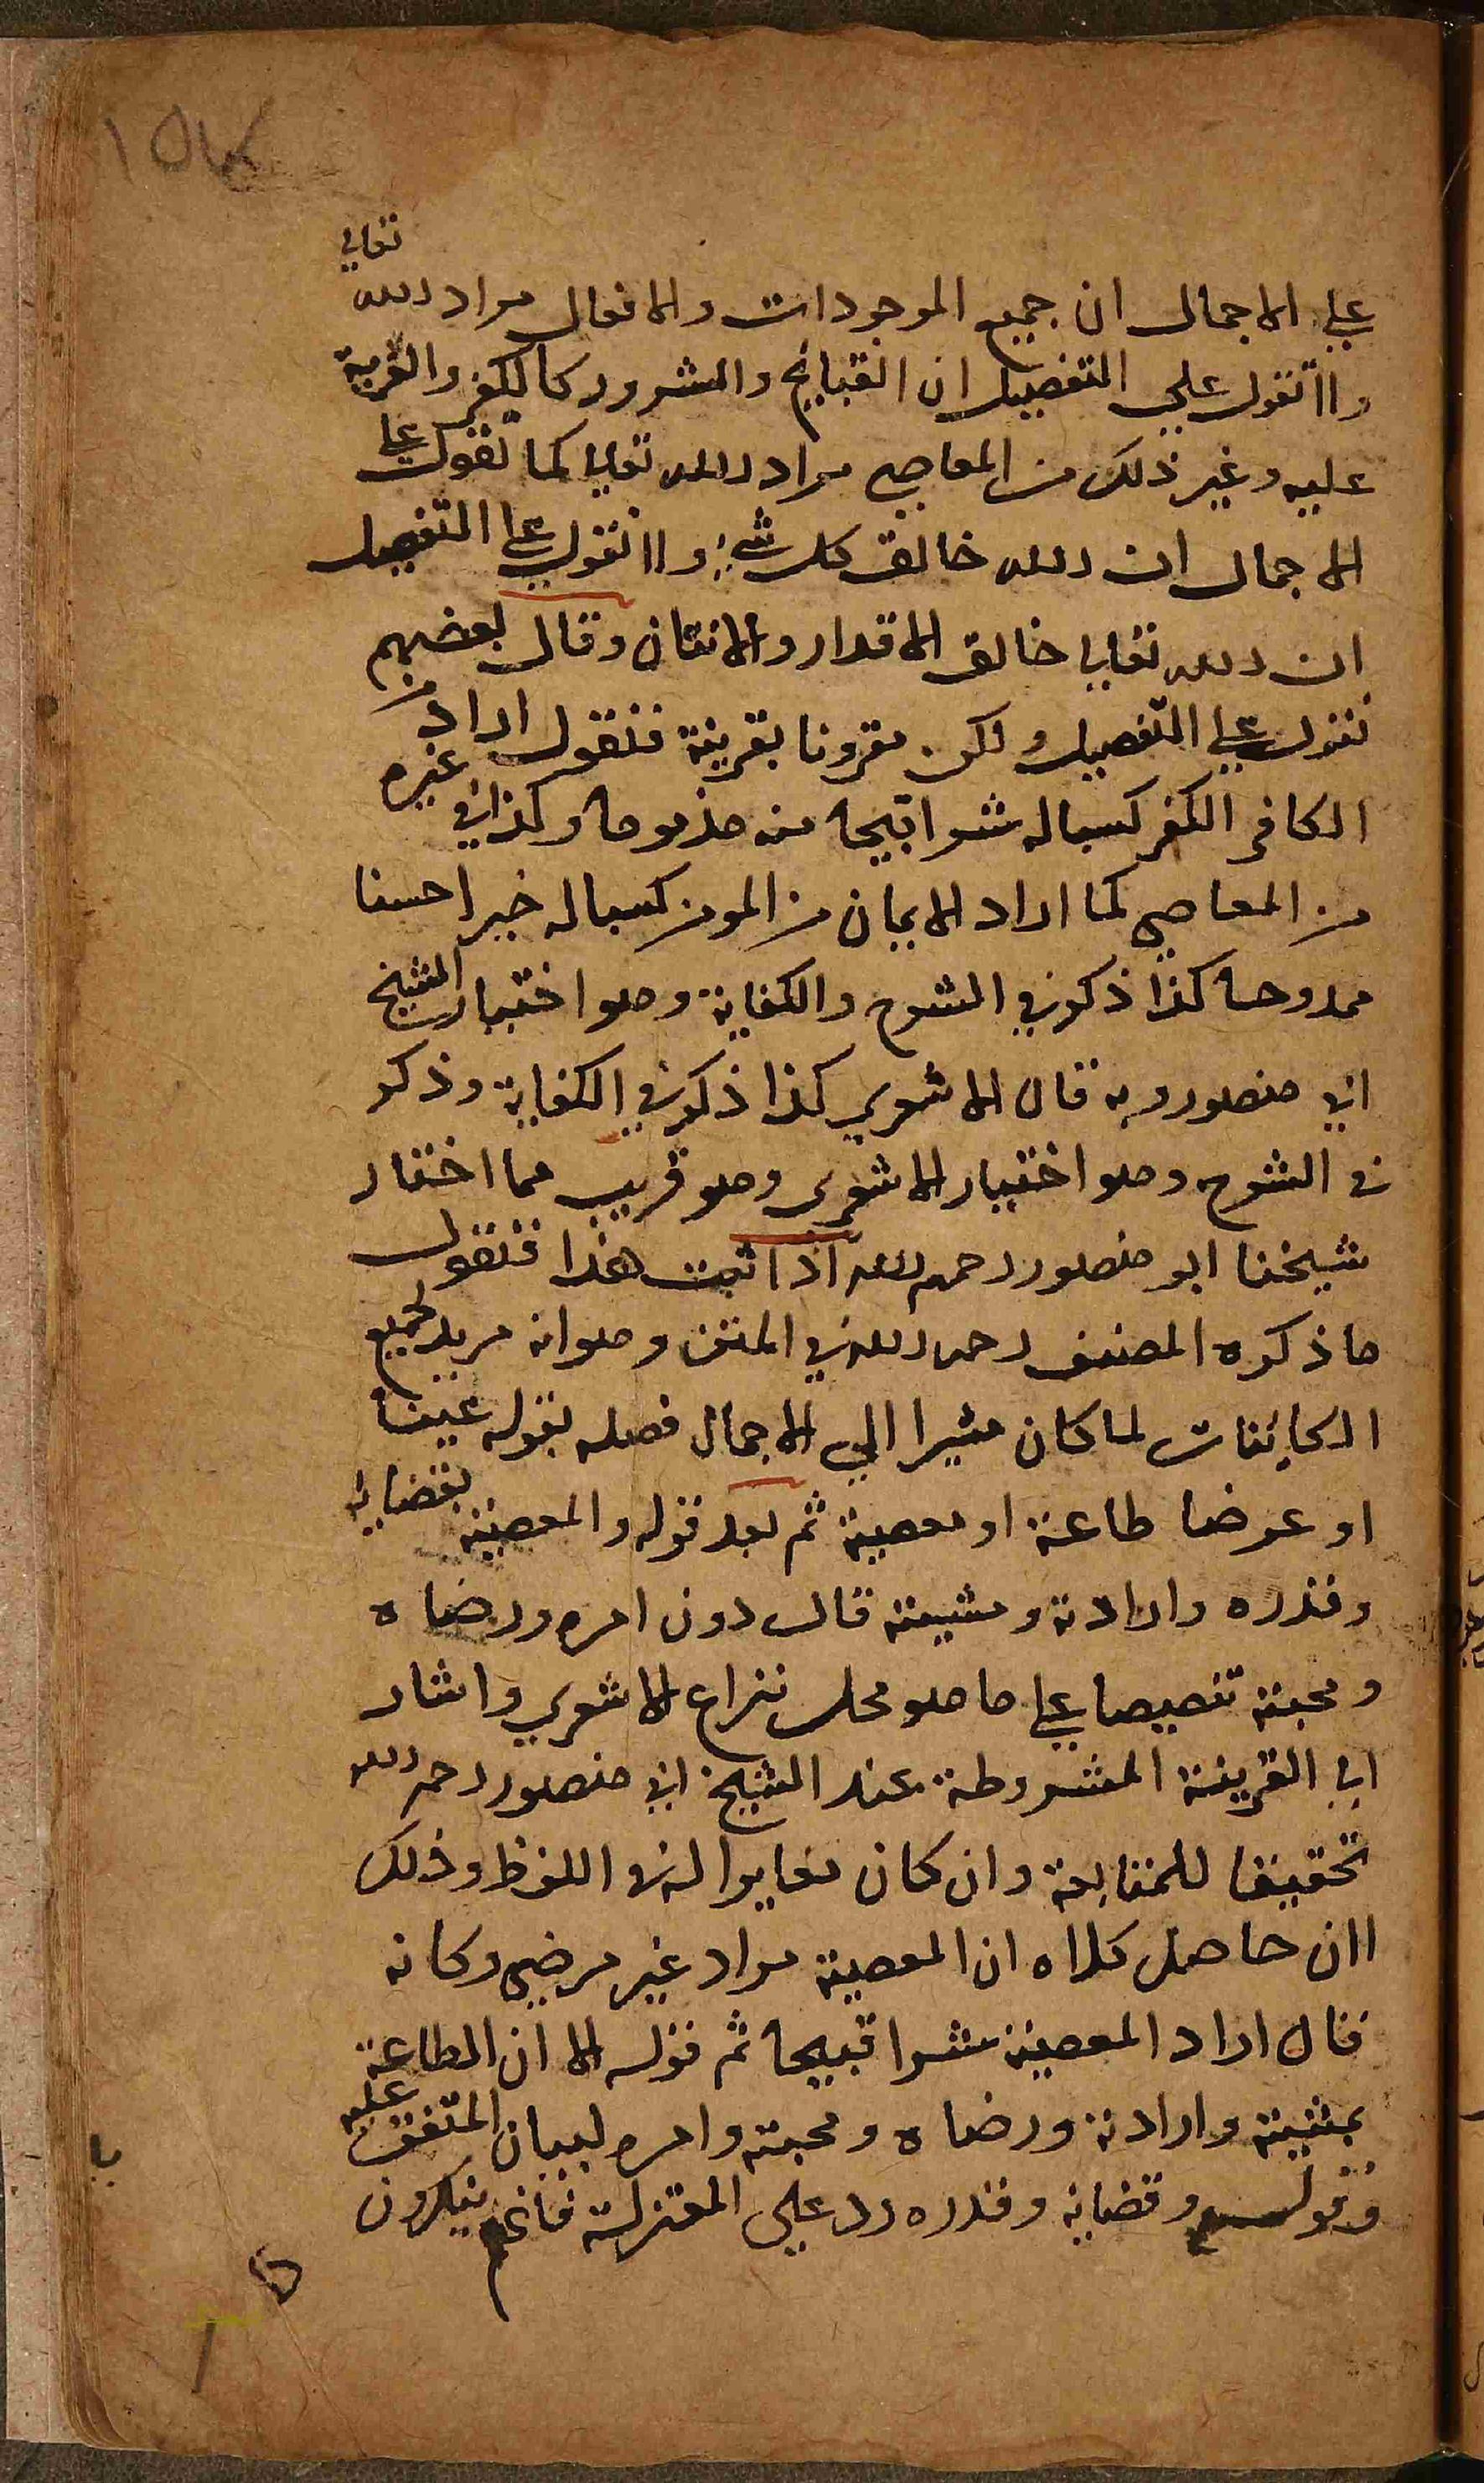 على الاجمال ان جميع الموجودات والافعال مراد الله تعالى
ولا نقول على التفصيل ان القبايح والشرور كالكفر والفرية
عليه وغير ذلك من المعاصي مراد الله تعالى كما نقول على
الاجمال ان الله خالق كل شئ ولا نقول على التفصيل
ان الله تعالى خالق الاقدار والانتان وقال بعضهم
نقول على التفصيل ولكن مقرونا بقرينة فنقول اراد من
الكافر الكفر كسبا له شرا قبيحا منه مذموما وكذا في غيره
من المعاصي كما اراد الايمان من المومن كسبا له خيرا حسنا
ممدوحا كذا ذكر في الشرح والكفاية وهو اختيار الشيخ
ابي منصور وبه قال الاشعري كذا ذكر في الكفاية وذكر
في الشرح وهو اختيار الاشعري وهو قريب مما اختار
شيخنا ابو منصور رحمه الله اذا ثبت هذا فنقول
ما ذكره المصنف رحمه الله في المتن وهو انه مريد لجميع
الكائنات لما كان مشيرا الى الاجمال فصله بقوله عينا
او عرضا طاعة او معصية ثم بعد قوله والمعصية بقضايه
وقدره وارادته ومشيته قال دون امره ورضاه
ومحبته تنصيصا على ما هو محل نزاع الاشعري واشار
الى القرينة المشروطة عند الشيخ ابي منصور رحمه الله
تحقيقا للمتابعة وان كان مغايرا له في اللفظ وذلك
لان حاصل كلامه ان المعصية مراد غير مرضي وكانه
قال اراد المعصية شرا قبيحا ثم قوله الا ان الطاعة
بمشيته وارادته ورضاه ومحبته وامره لبيان المتفق عليه
وقوله وقضايه وقدره رد على المعتزلة فانهم ينكرون